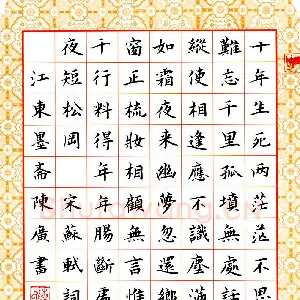 十年生死兩茫茫不思
難忘千里孤墳無處話
縱使相逢應不識塵滿
如霜夜來幽夢忽還鄉
窗正梳妝相顧無言惟
千行料得年年腸斷處
夜短松岡 宋蘇軾詞
江東墨斋陳廣書